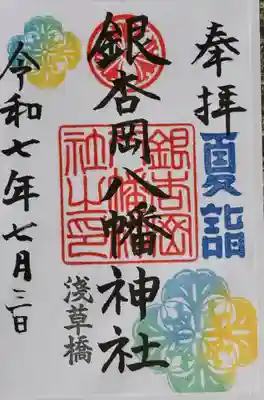 奉拝
夏詣
銀杏岡八幡神社
銀杏岡八幡神社之印
浅草橋
令和七年七月三日